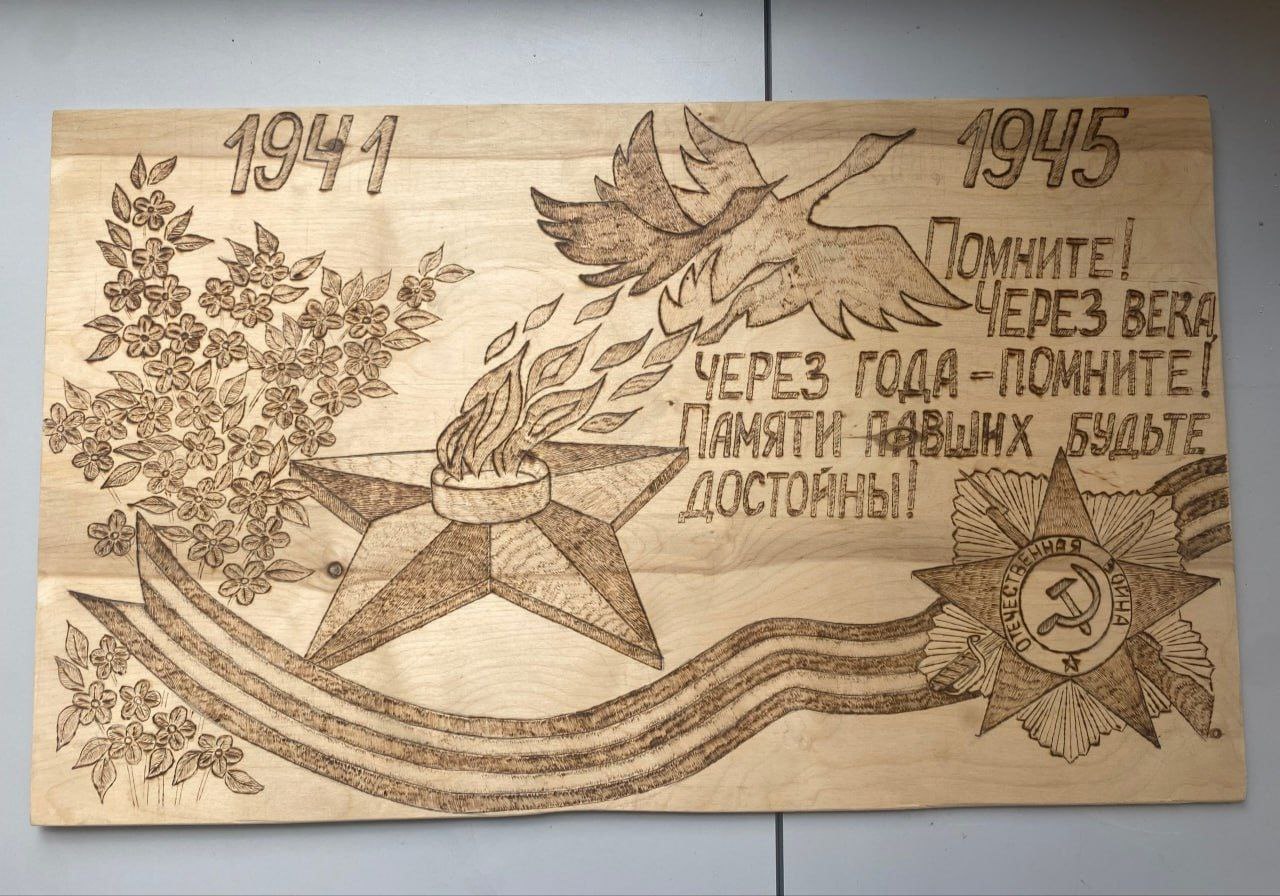 1941
1945
Помните!
Через века
через года - помните!
Памяти павших будьте
достойны!
ОТЕЧЕСТВЕННАЯ ВОЙНА